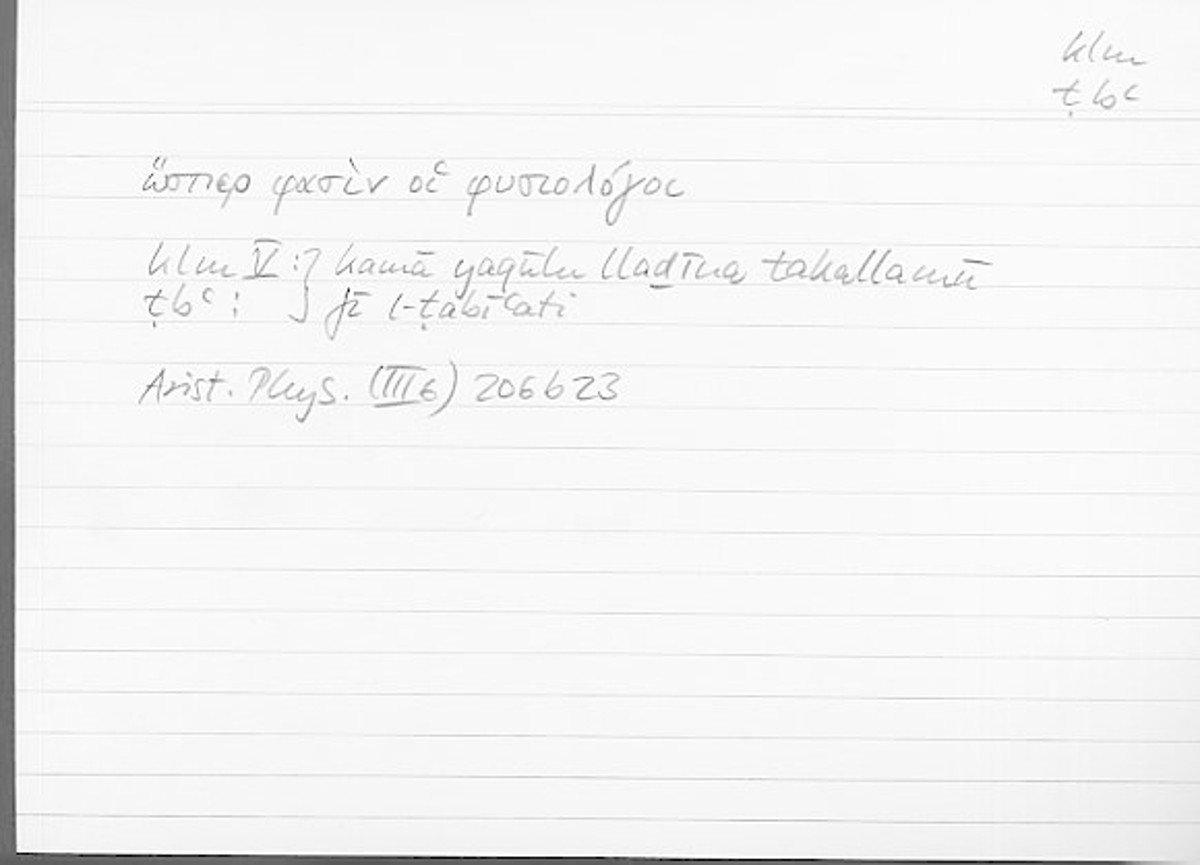 klm
ṭbʿ
ὥσπερ φασὶν οἱ φυσιολόγοι
klm V :} kamā yaqūlu lladīna takallamū
ṭbʿ : } fī l-ṭabīʿati
Arist. Phys. (III 6) 206b23